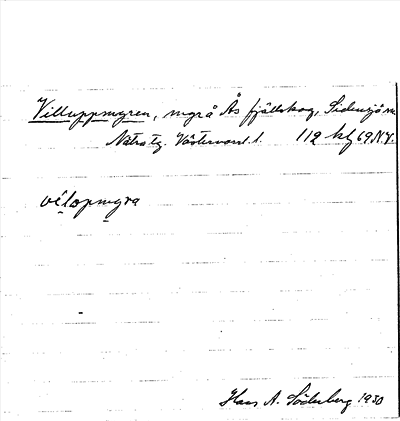 Villuppmyren, myrå Ås fjällskog, Sidensjö sn.
Nätra tg. Västernorrl. l. 112 kf 69 N.Y.
vi̯lopmyra
Hans A. Söderberg 1930